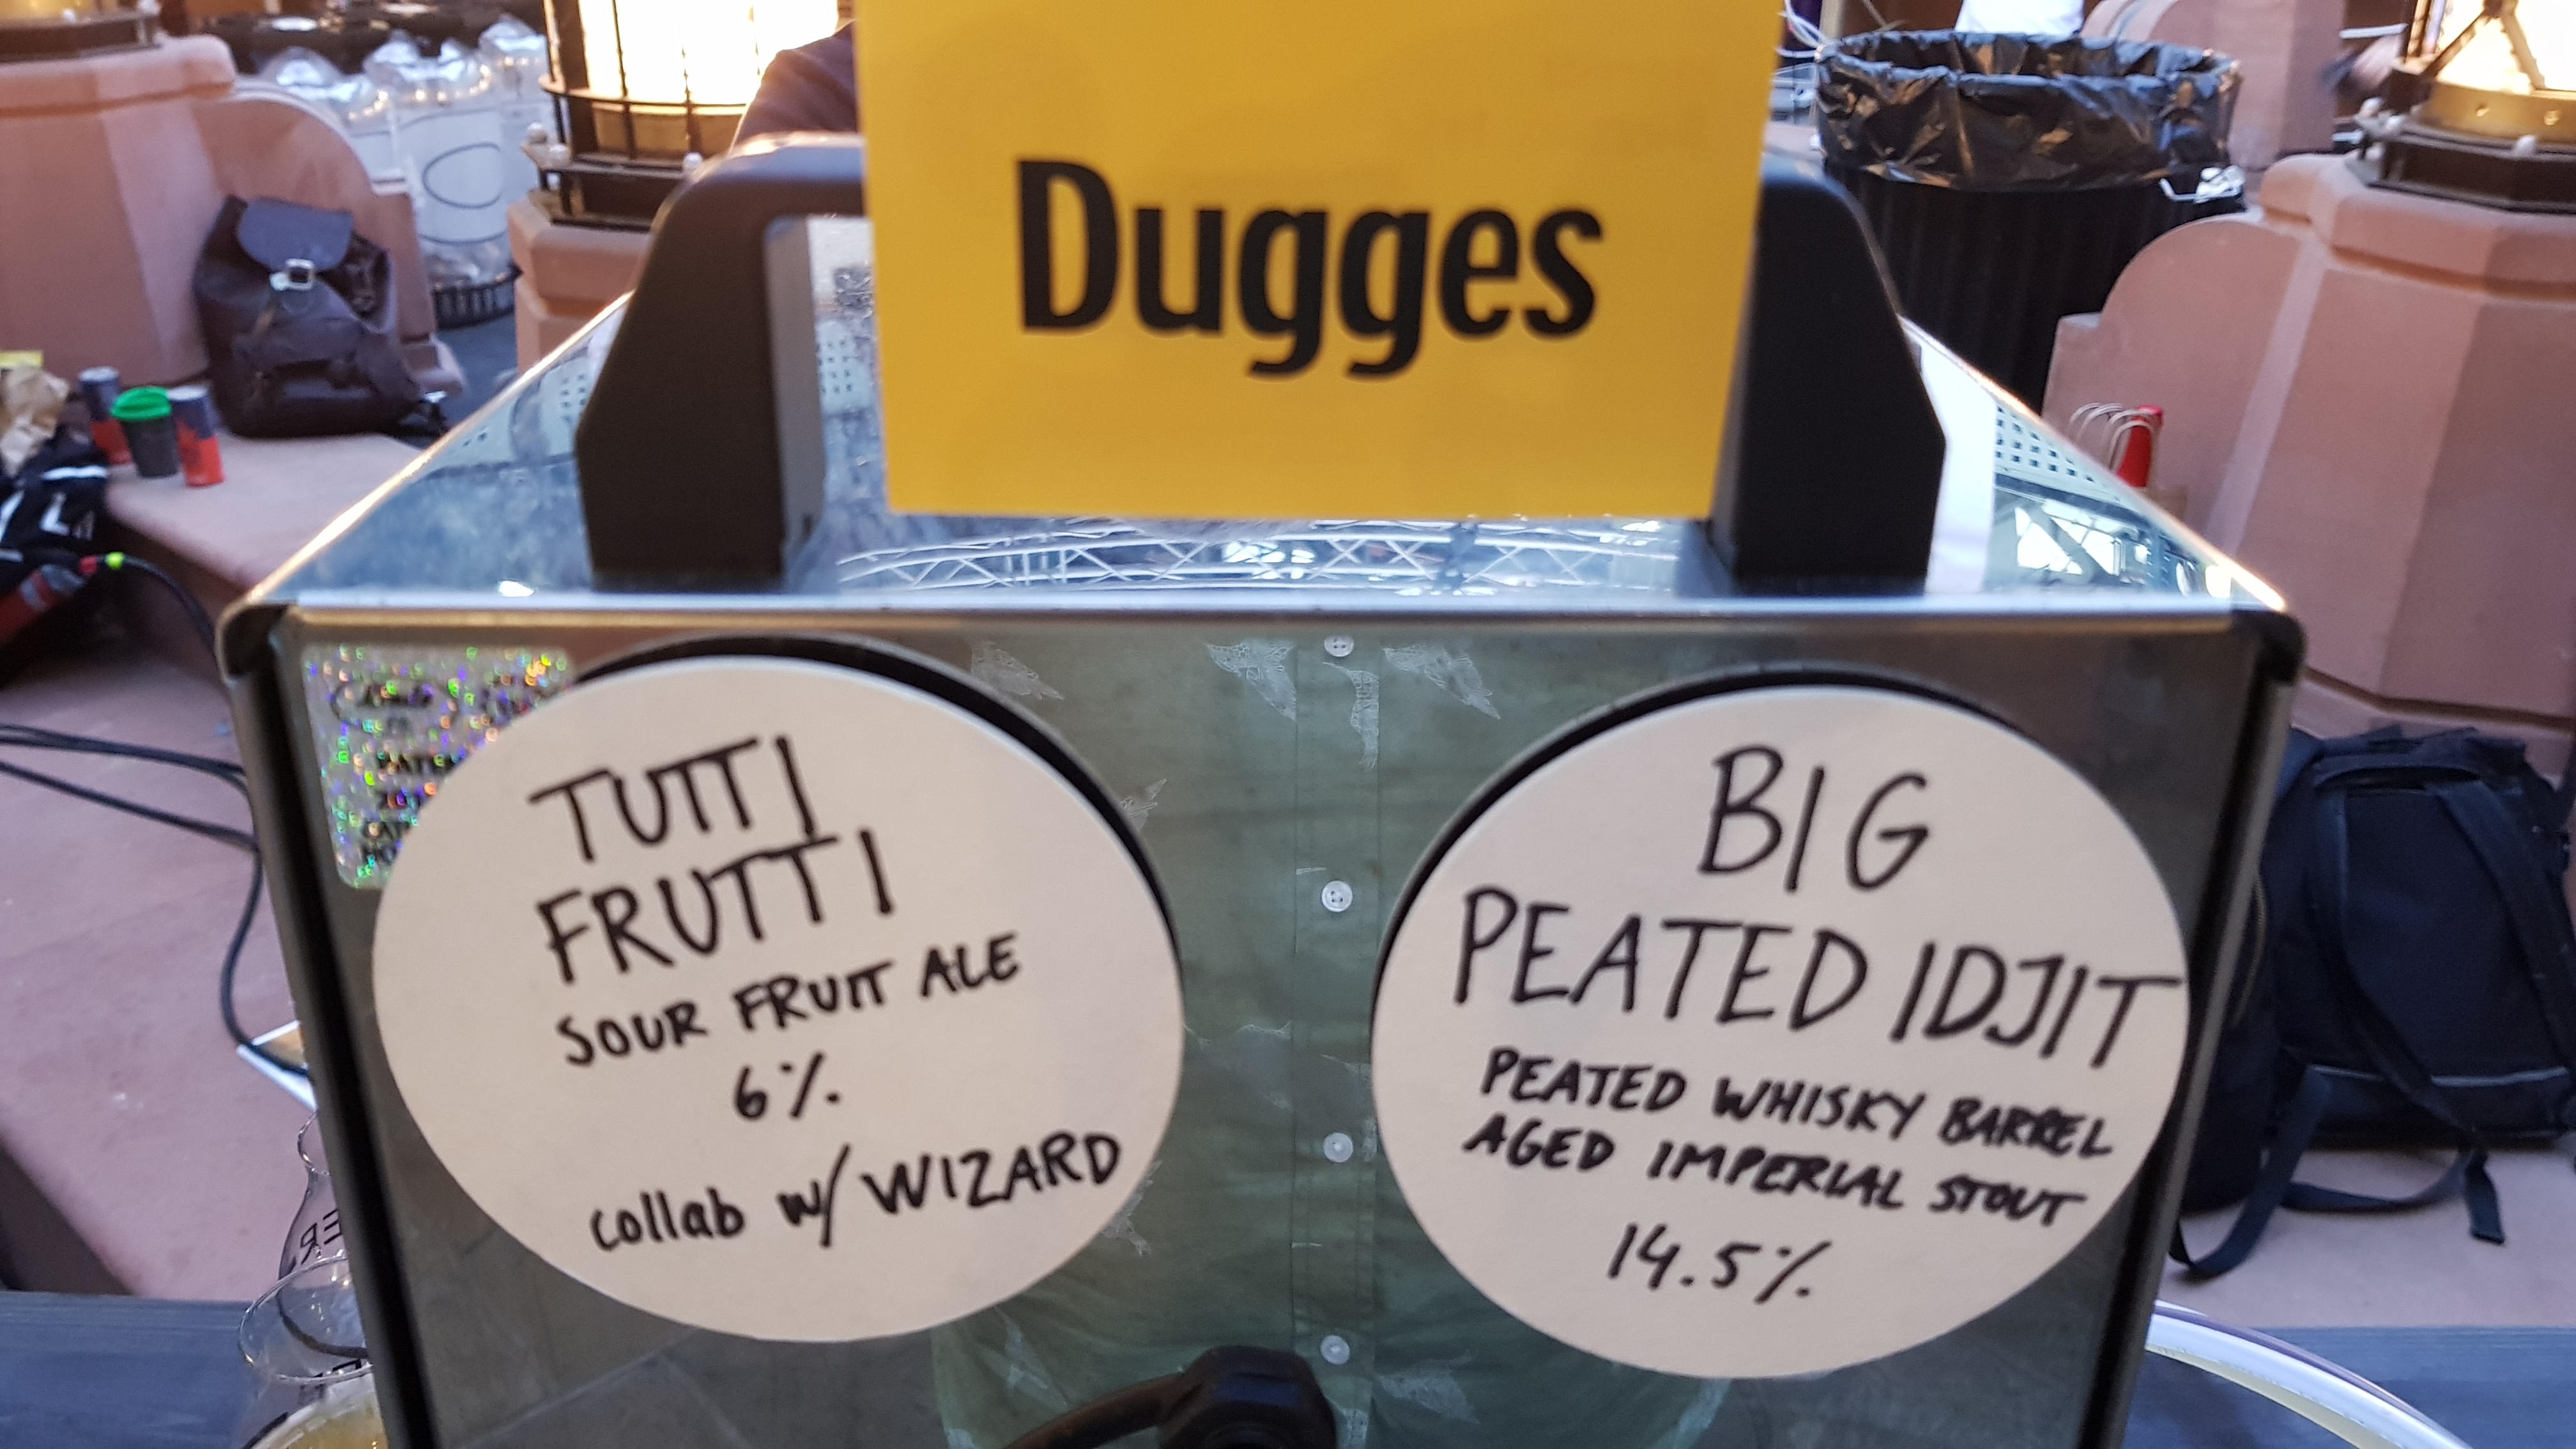 Dugges
TUTTI
FRUTTI
SOUR FRUIT ALE
6%
collab w/ WIZARD
BIG
PEATED IDJIT
PEATED WHISKY BARREL
AGED IMPERIAL STOUT
14.5%